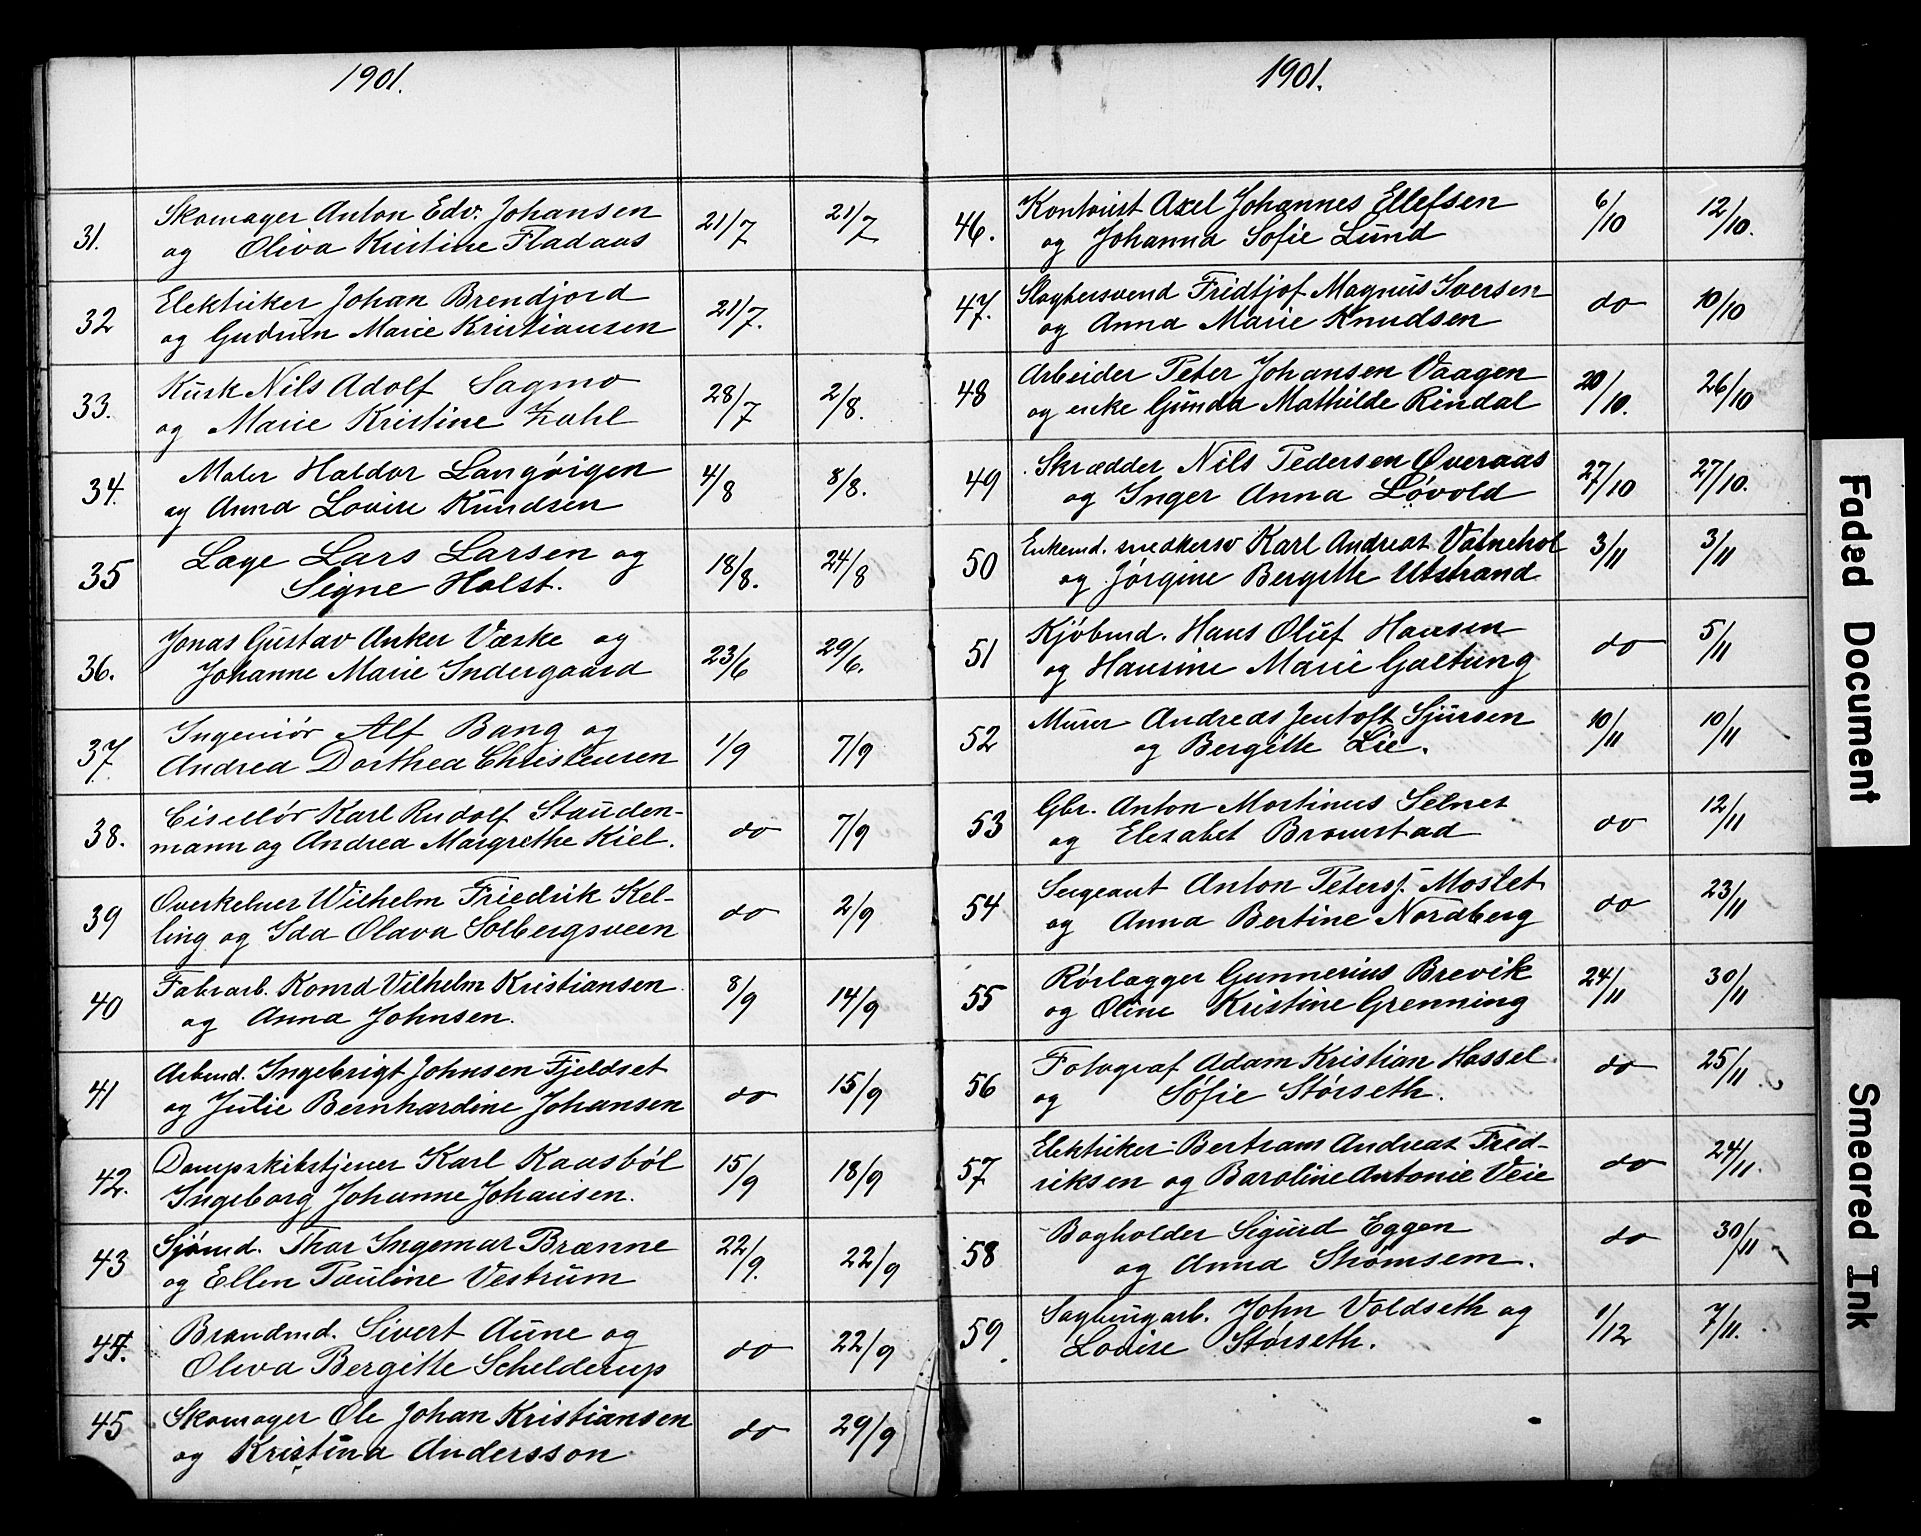 1901.
31. Skomager Anton Edv. Johansen 21/7 21/7
og Oliva Kristine Fladaas
32 Elektriker Johan Brendjord 21/7.
og Gudrun Marie Kristiansen
33. Kusk Nils Adolf Sagmo 28/7 2/8.
og Marie Kristine Zahl
34. Maler Haldor Langöigen 4/8 8/8.
og Anna Lovise Knudsen
35 Lage Lars Larsen og 18/8. 24/8
Signe Holst.
36. Jonas Gustav Anker Værke og 23/6 29/6.
Johanne Marie Indergaard
37. Ingeniör Alf Bang og 1/9 7/9
Andrea Dorthea Christensen
38. Ciselör Karl Rudolf Stauden- do 7/9
mann og Andrea Margrethe Kiel.
39 Overkelner Wilhelm Friedrik Kel- do 2/9
ling og Ida Olava Solbergsveen
40 Fabrarb. Konrd Vilhelm Kristiansen 8/9 14/9
og Anna Johnsen.
41 Arbmd. Ingebrigt Johnsen Fjeldset do 15/9
og Julie Bernhardine Johansen
42. Dampskibstjener Karl Kaasböl 15/9 18/9
Ingeborg Johanne Johansen.
43 Sjømd. Thor Ingemar Brænne 22/9. 22/9
og Ellen Pauline Vestrum
44. Brandmd. Sivert Aune og do 22/9
Oleva Bergitte Schelderup
45 Skomager Ole Johan Kristiansen do 29/9
og Kristina Andersson
1901.
46. Kontorist Axel Johannes Ellefsen 6/10 12/10.
og Johanna Sofie Lund
47. Slagtersvend Fridtjof Magnus Iversen do 10/10
og Anna Marie Knudsen
48 Arbeider Peter Johansen Vaagen 20/10. 26/10
og enke Gunda Mathilde Rindal
49 Skrædder Nils Pedersen Øveraas 27/10 27/10.
og Inger Anna Løvold
50 Enkemd. snedkersv Karl Andreas Vatnehol 3/11 3/11
og Jörgine Bergitte Utstrand
51 Kjöbmd. Hans Oluf Hansen do 5/11
og Hansine Marie Galtung
52 Murer Andreas Jentoft Sjursen 10/11 10/11
og Bergitte Lie.
53 Gbr. Anton Martinus Selnes do 12/11
og Elesabet Bromstad
54 Sergeant Anton Petersf. Moslet do 23/11
og Anna Bertine Nordberg
55 Rörlægger Gunnerius Brevik 24/11 30/11
og Oline Kristine Grenning
56 Fotograf Adam Kristian Hassel do 25/11
og Sofie Störseth.
57 Elektriker Bertram Andreas Fred- do 24/11.
riksen og Baroline Antonie Veie
58 Bogholder Sigurd Eggen do 30/11
og Anna Stromsem.
59. Sagbrugarb. John Voldseth og 1/12 7/11.
Lovise Störseth.
Faded Document
Smeared Ink